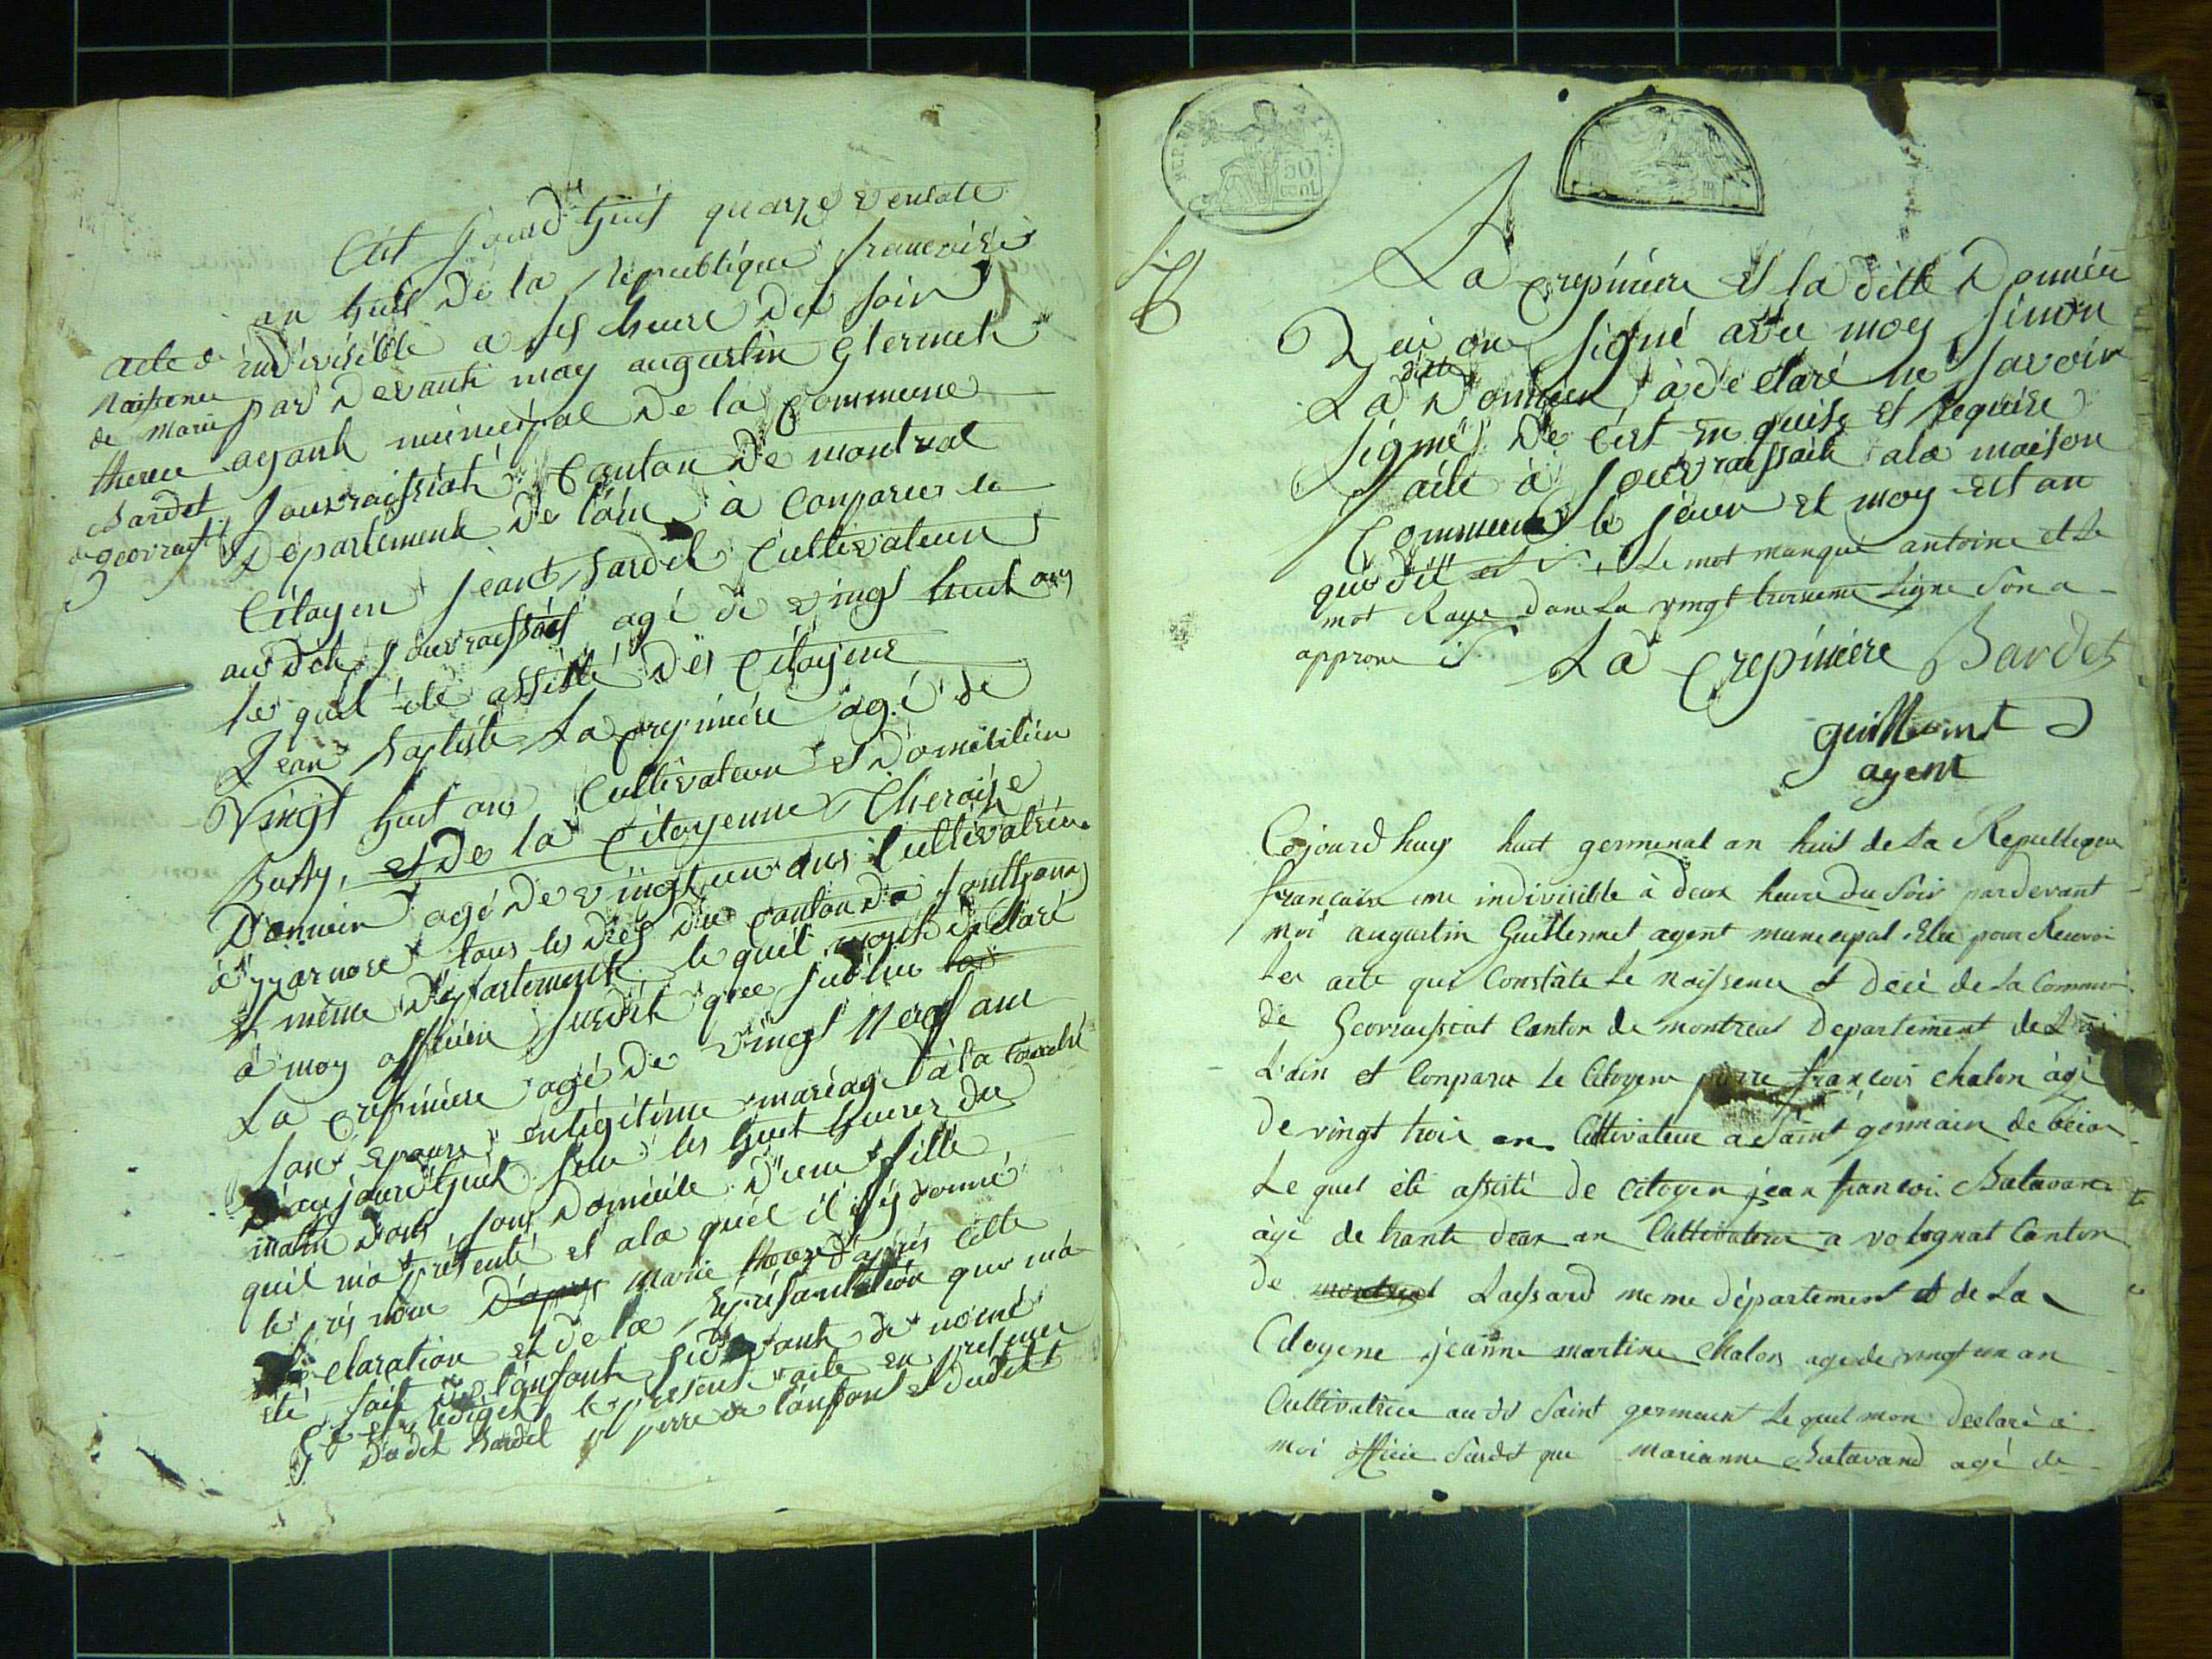 acte de
Naissence
de Marie
therese
Bardet
Cest jourd'huit quatze ventose
an huit de la republique francoise
indivisible a sis heure du soir
par devant moy augustin Glermet
agant municipal de la Commune
Jouvraissiat Canton de montreal
Departement de lain à Conparu le
Citoyen Jean Bardet Cultivateur
au dit Jouvraissiat agé de vingt huit ans
le quel été assisté des Citoyens
Jean Baptiste La Crepiniere agé de
Vingt huit ans Cultivateur et Domicilier
et de la Citoyenne Theraise
agé de vingt un ans Cultivatrice
à yzarnore tous les dies du Canton de
et même Departement le quel declaré
à moy officier susdit que
La Crepiniere agé de vingt Neuf ans
son Epouse en legitime mariage
aujourd'huit sur les huit heures du
matin dans son Domicile d'une fille
quil ma présenté et ala quel il donné
le pre nom D'apres Marie therese d'apres Cette
Declaration et de la représantation que ma
été fait de lanfant de nomé
redigér le present acte en presence
dudet Bardet perre de lanfant et dudit
REP. FR.
50
cent
La Crepiniere et la ditte Donnier
Qui on signé avec moy sinon
La ditte Donnier à declaré ne savoir
signér de cest en quise et requise
faite à Jouvraissait ala maison
Commune le jour et moy et an
que dit Le mot manque antoine et Le
mot Raye dans La vingt troisieme Ligne son a
approuve
La Crepiniere Bardet
guillermet
agent
Cejourd huy huit germinal an huit de La Republique
francaise une indivisible à deux heure du Soir pardevant
Moi augustin Guillermet agent municipal Elu pour Recevoir
Les acte qui Constate Le Naissence et decè de La Commune
de Geovraissiat Canton de montreal Departement de
L'ain et Conparu Le Citoyen pierre francois chalon àgé
De vingt trois an Cultivateur a Saint germain de béior
Le quel été assisté de Citoyen jean francois Batavand
àgé de trante deux an Cultivateur a volognat Canton
De montreal Laissard meme département et de La
Citoyene jeanne martine Chalon agé de vingt un an
Cultivatrice au dt Saint germain Le quel mon declaré à
moi officié Susdt que Marianne Batavand agé de